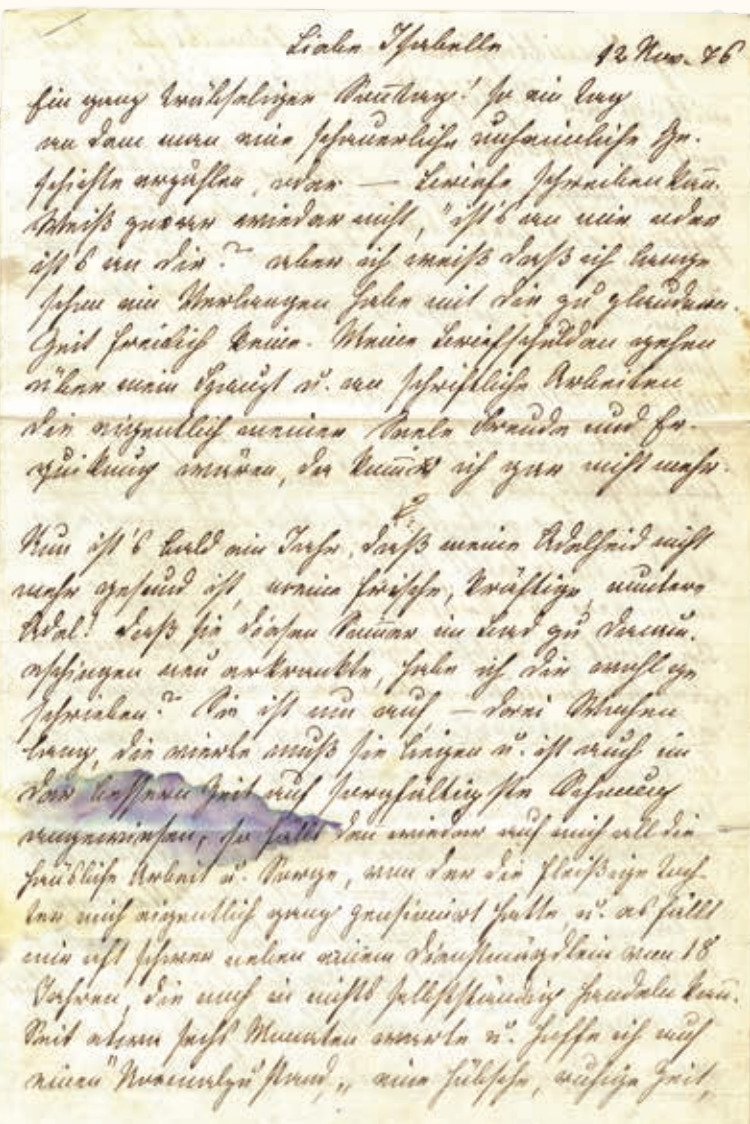 Liebe Isabelle
12 Nov. 76
Ein ganz trübseliger Sonntag! so ein Tag
an dem man eine schauerliche unheimliche Ge-
schichte erzählen, oder — Briefe schreiben kann.
Weiß zwar wieder nicht, "ist's an mir oder
ist's an dir?" aber ich weiß daß ich lange
schon ein Verlangen habe mit dir zu plaudern.
Zeit freilich keine. Meine Briefschulden gehen
über mein Haupt u. an schriftliche Arbeiten
die eigentlich meiner Seele Freude und Er-
quikung wären, da komm ich gar nicht mehr.
Nun ist's bald ein Jahr, daß meine Adelheid nicht
mehr gesund ist, meine frische, kräftige, muntere
Adel! daß sie diesen Sommer im Bad zu Donau-
eschingen neu erkrankte, habe ich dir wohl ge
schrieben? Sie ist nun auf — drei Wochen
lang, die vierte muß sie liegen u. ist auch in
der bessern Zeit auf sorgfältigste Schonung
angewiesen, so fällt den wieder auf mich all die
häusliche Arbeit u. Sorge, von der die fleißige Toch-
ter mich eigentlich ganz pensionirt hatte, u. es fällt
mir oft schwer neben einem Dienstmägdlein von 18
Jahren, die noch in nichts selbstständig handeln kann.
Seit etwan sechs Monaten warte u. hoffe ich auf
einen "Normalzustand„ eine hübsche, ruhige Zeit,